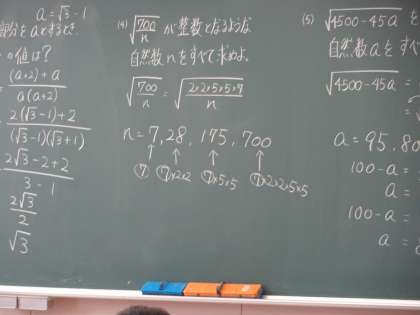 a=√3-1
部分をaとするとき
の値は?
(a+2)+a
a(a+2)
2(√3-1)+2
(√3-1)(√3+1)
2√3-2+2
3-1
2√3
2
√3
(4) √700/n が整数となるような
自然数nをすべて求めよ。
√700/n = √2×2×5×5×7/n
n=7,28,175,700
⑦ ⑦×2×2 ⑦×5×5 ⑦×2×2×5×5
(5) √4500-45a
自然数aをす
√4500-45a =
=
a=95,80
100-a=
a=
100-a=
a=